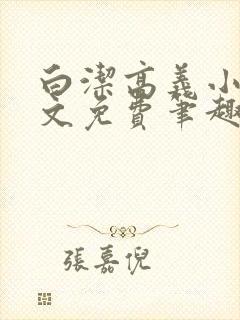 白潔高義小
文免費筆趣
張嘉倪